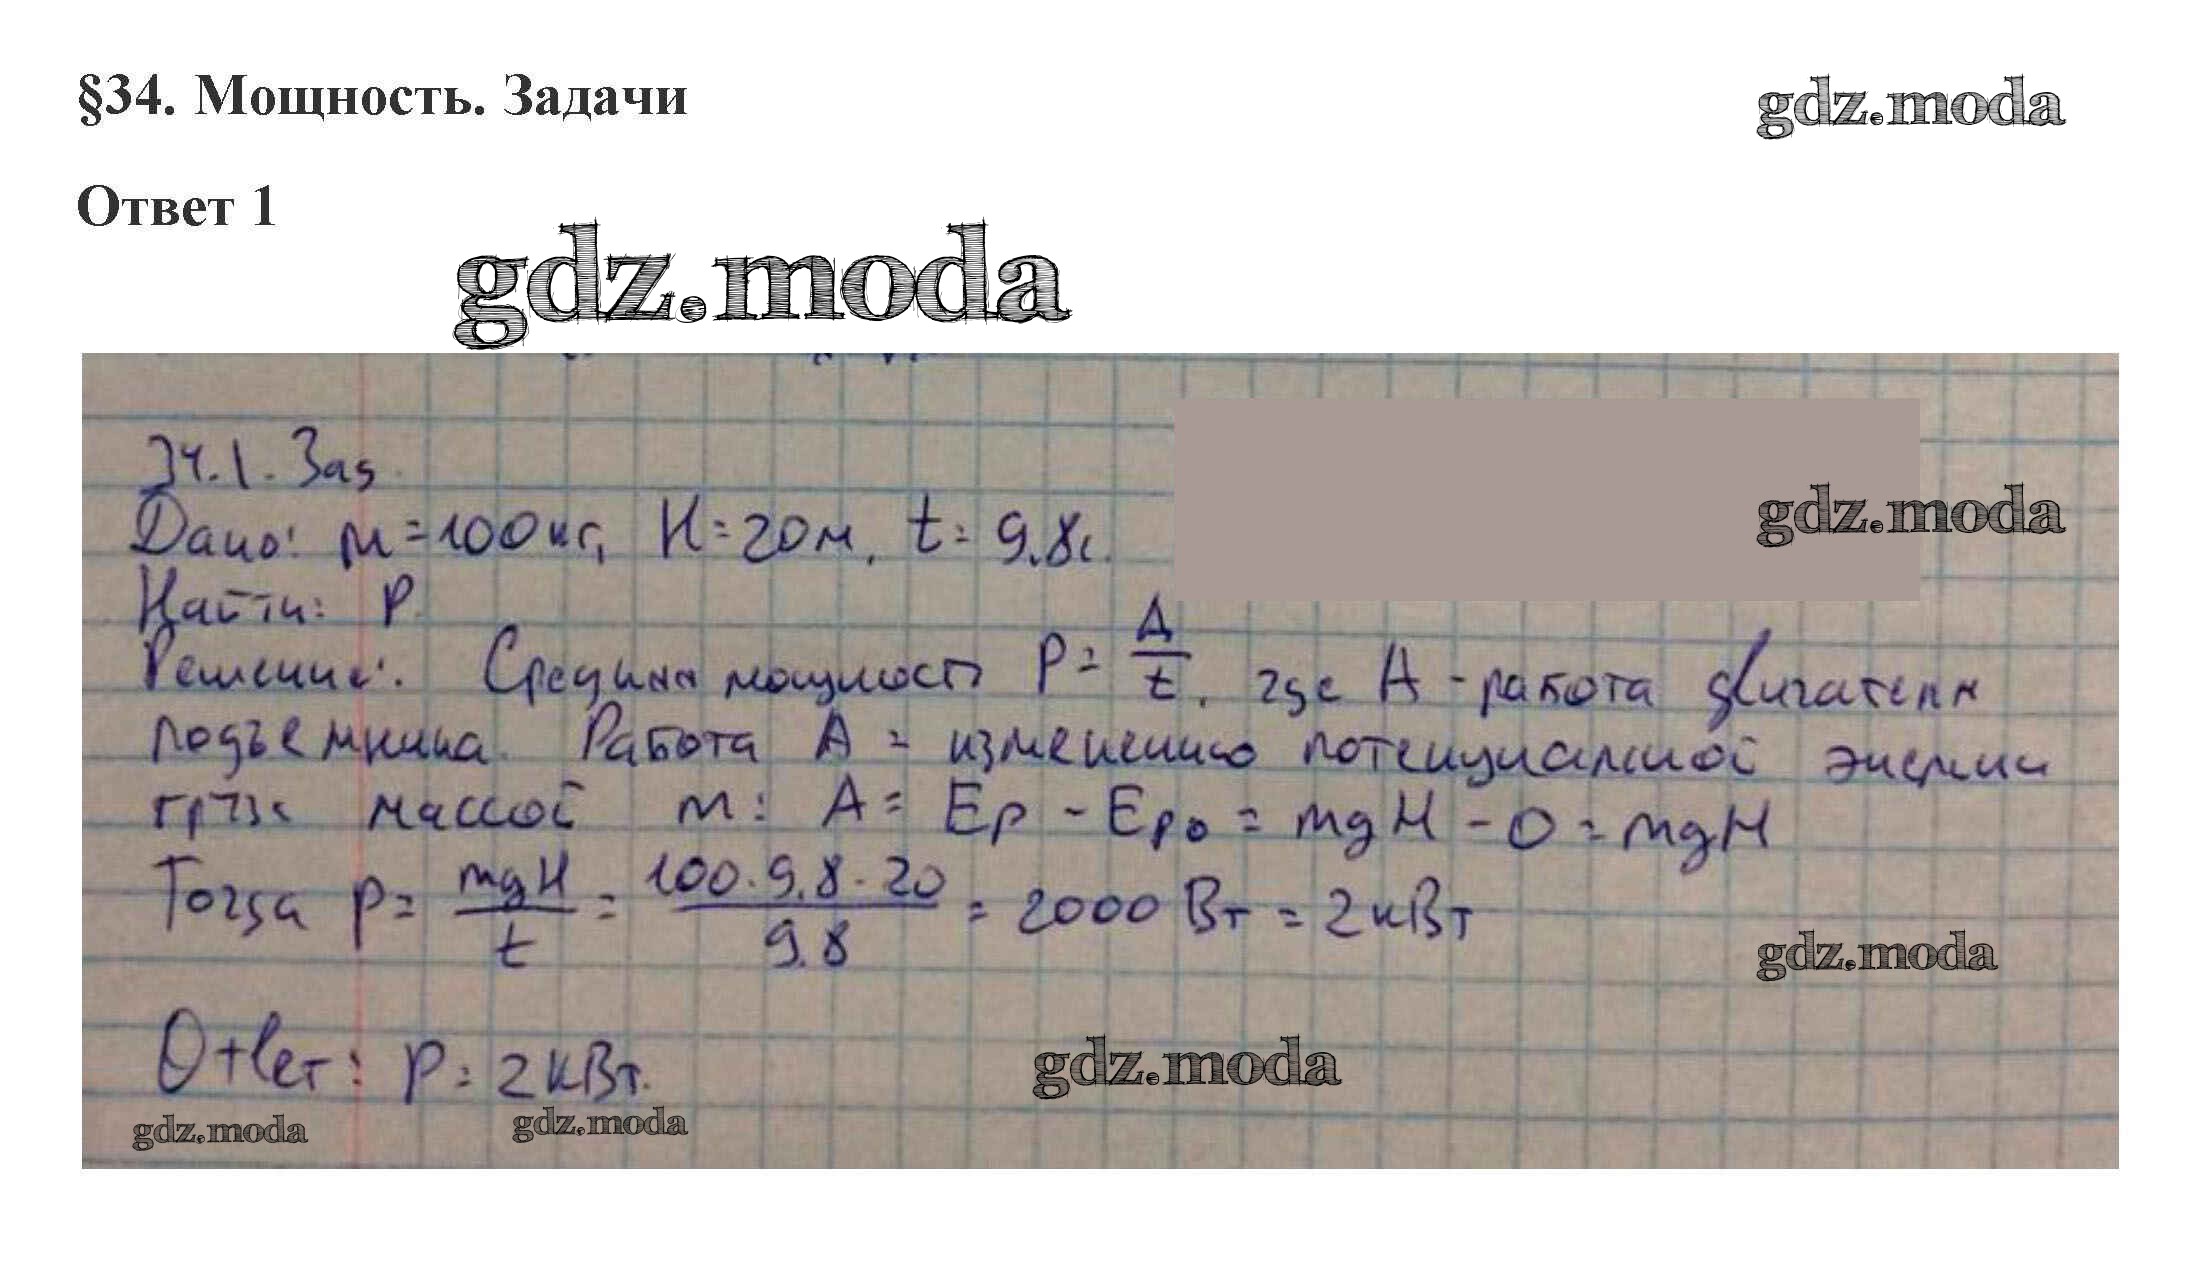 §34. Мощность. Задачи
gdz.moda
Ответ 1
gdz.moda
34.1. Зад.
Дано: m = 100 кг, H = 20 м, t = 9.8 с.
gdz.moda
Найти: P.
Решение: Средняя мощность P = A/t, где A - работа двигателя
подъемника. Работа A = изменению потенциальной энергии
груза массой m: A = Ep - Ep₀ = mgH - 0 = mgH
Тогда P = mgH/t = 100·9.8·20/9.8 = 2000 Вт = 2 кВт
gdz.moda
Ответ: P = 2 кВт.
gdz.moda
gdz.moda
gdz.moda